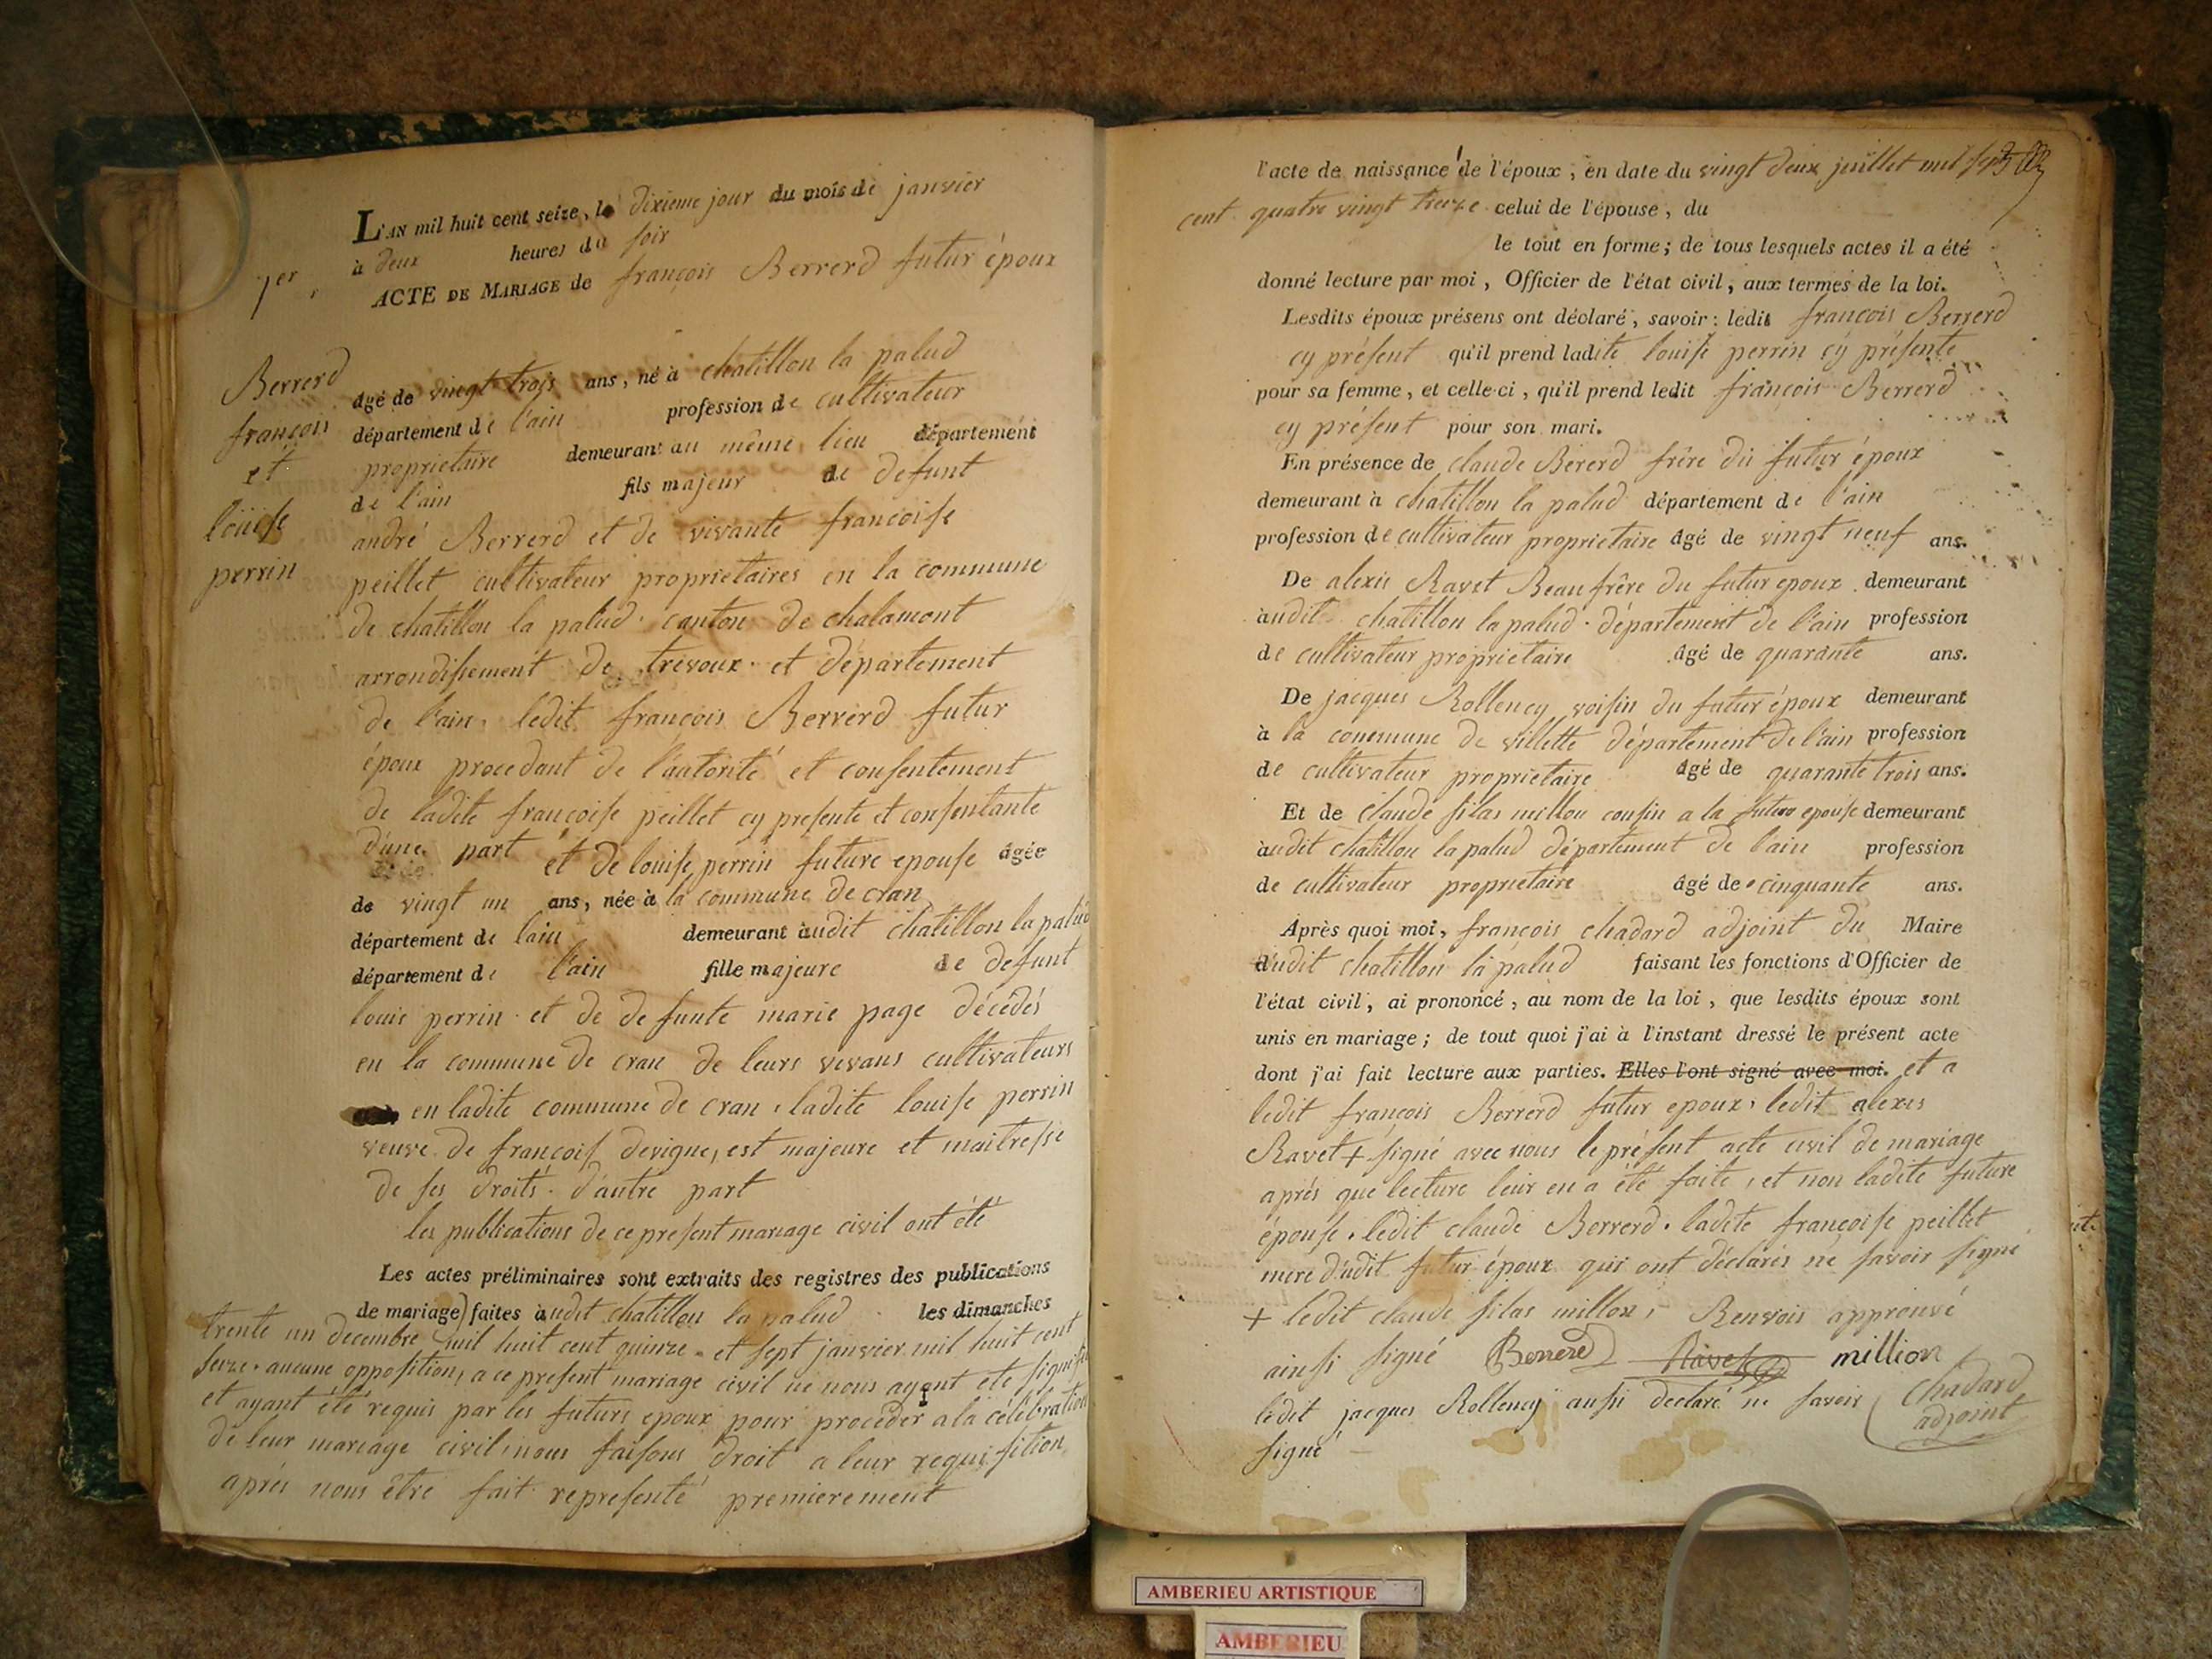 L'AN mil huit cent seize, le dixieme jour du mois de janvier
à deux heures du soir
1er
ACTE DE MARIAGE de françois Berrerd futur époux
Berrerd
françois
et
louise
perrin
âgé de vingt trois ans, né à chatillon la palud
département de l'ain profession de cultivateur
proprietaire demeurant au même lieu département
de l'ain fils majeur de defunt
andré Berrerd et de vivante françoise
peillet cultivateur proprietaires en la commune
de chatillon la palud. canton de chalamont
arrondissement de trevoux et département
de l'ain. ledit françois Berrerd futur
époux procedant de l'autorité et consentement
de ladite françoise peillet cy presente et consentante
d'une part et de louise perrin future epouse âgée
de vingt un ans, née à la commune de cran
département de lain demeurant audit chatillon la palud
département de l'ain fille majeure de defunt
louis perrin et de defunte marie page décédés
en la commune de cran de leurs vivans cultivateurs
en ladite commune de cran, ladite louise perrin
veuve de françois devigne, est majeure et maitresse
de ses droits. d'autre part
les publications de ce present mariage civil ont été
Les actes préliminaires sont extraits des registres des publications
de mariage) faites audit chatillon la palud les dimanches
trente un decembre mil huit cent quinze et sept janvier mil huit cent
seize. aucune opposition, a ce present mariage civil ne nous ayant été signifié
et ayant été requis par les futurs epoux pour proceder a la célébration
de leur mariage civil, nous faisons droit a leur requisition
aprés nous être fait representé premierement
l'acte de naissance de l'époux, en date du vingt deux juillet mil sept
cent quatre vingt treize celui de l'épouse, du
le tout en forme; de tous lesquels actes il a été
donné lecture par moi, Officier de l'état civil, aux termes de la loi.
Lesdits époux présens ont déclaré, savoir: ledit françois Berrerd
cy présent qu'il prend ladite louise perrin cy présente
pour sa femme, et celle-ci, qu'il prend ledit françois Berrerd
cy présent pour son mari.
En présence de claude Bererd frère du futur époux
demeurant à chatillon la palud département de l'ain
profession de cultivateur proprietaire âgé de vingt neuf ans.
De alexis Ravet Beau frère du futur epoux demeurant
audit chatillon la palud. département de l'ain profession
de cultivateur proprietaire âgé de quarante ans.
De jacques Rollency voisin du futur époux demeurant
à la commune de villette département de l'ain profession
de cultivateur proprietaire âgé de quarante trois ans.
Et de claude silas millon cousin a la future epouse demeurant
audit chatillon la palud département de l'ain profession
de cultivateur proprietaire âgé de cinquante ans.
Après quoi moi, françois chadard adjoint du Maire
dudit chatillon la palud faisant les fonctions d'Officier de
l'état civil, ai prononcé, au nom de la loi, que lesdits époux sont
unis en mariage; de tout quoi j'ai à l'instant dressé le présent acte
dont j'ai fait lecture aux parties. Elles l'ont signé avec moi. et a
ledit françois Berrerd futur epoux, ledit alexis
Ravet + signé avec nous le présent acte civil de mariage
aprés que lecture leur en a été faite, et non ladite future
épouse. ledit claude Berrerd. ladite françoise peillet
mere dudit futur époux qui ont déclarés ne savoir signé
+ ledit claude silas millon, Renvois approuvé
ainsi signé Berrerd Ravet million
ledit jacques Rollency aussi declaré ne savoir
signé
chadard
adjoint
AMBERIEU ARTISTIQUE
AMBERIEU